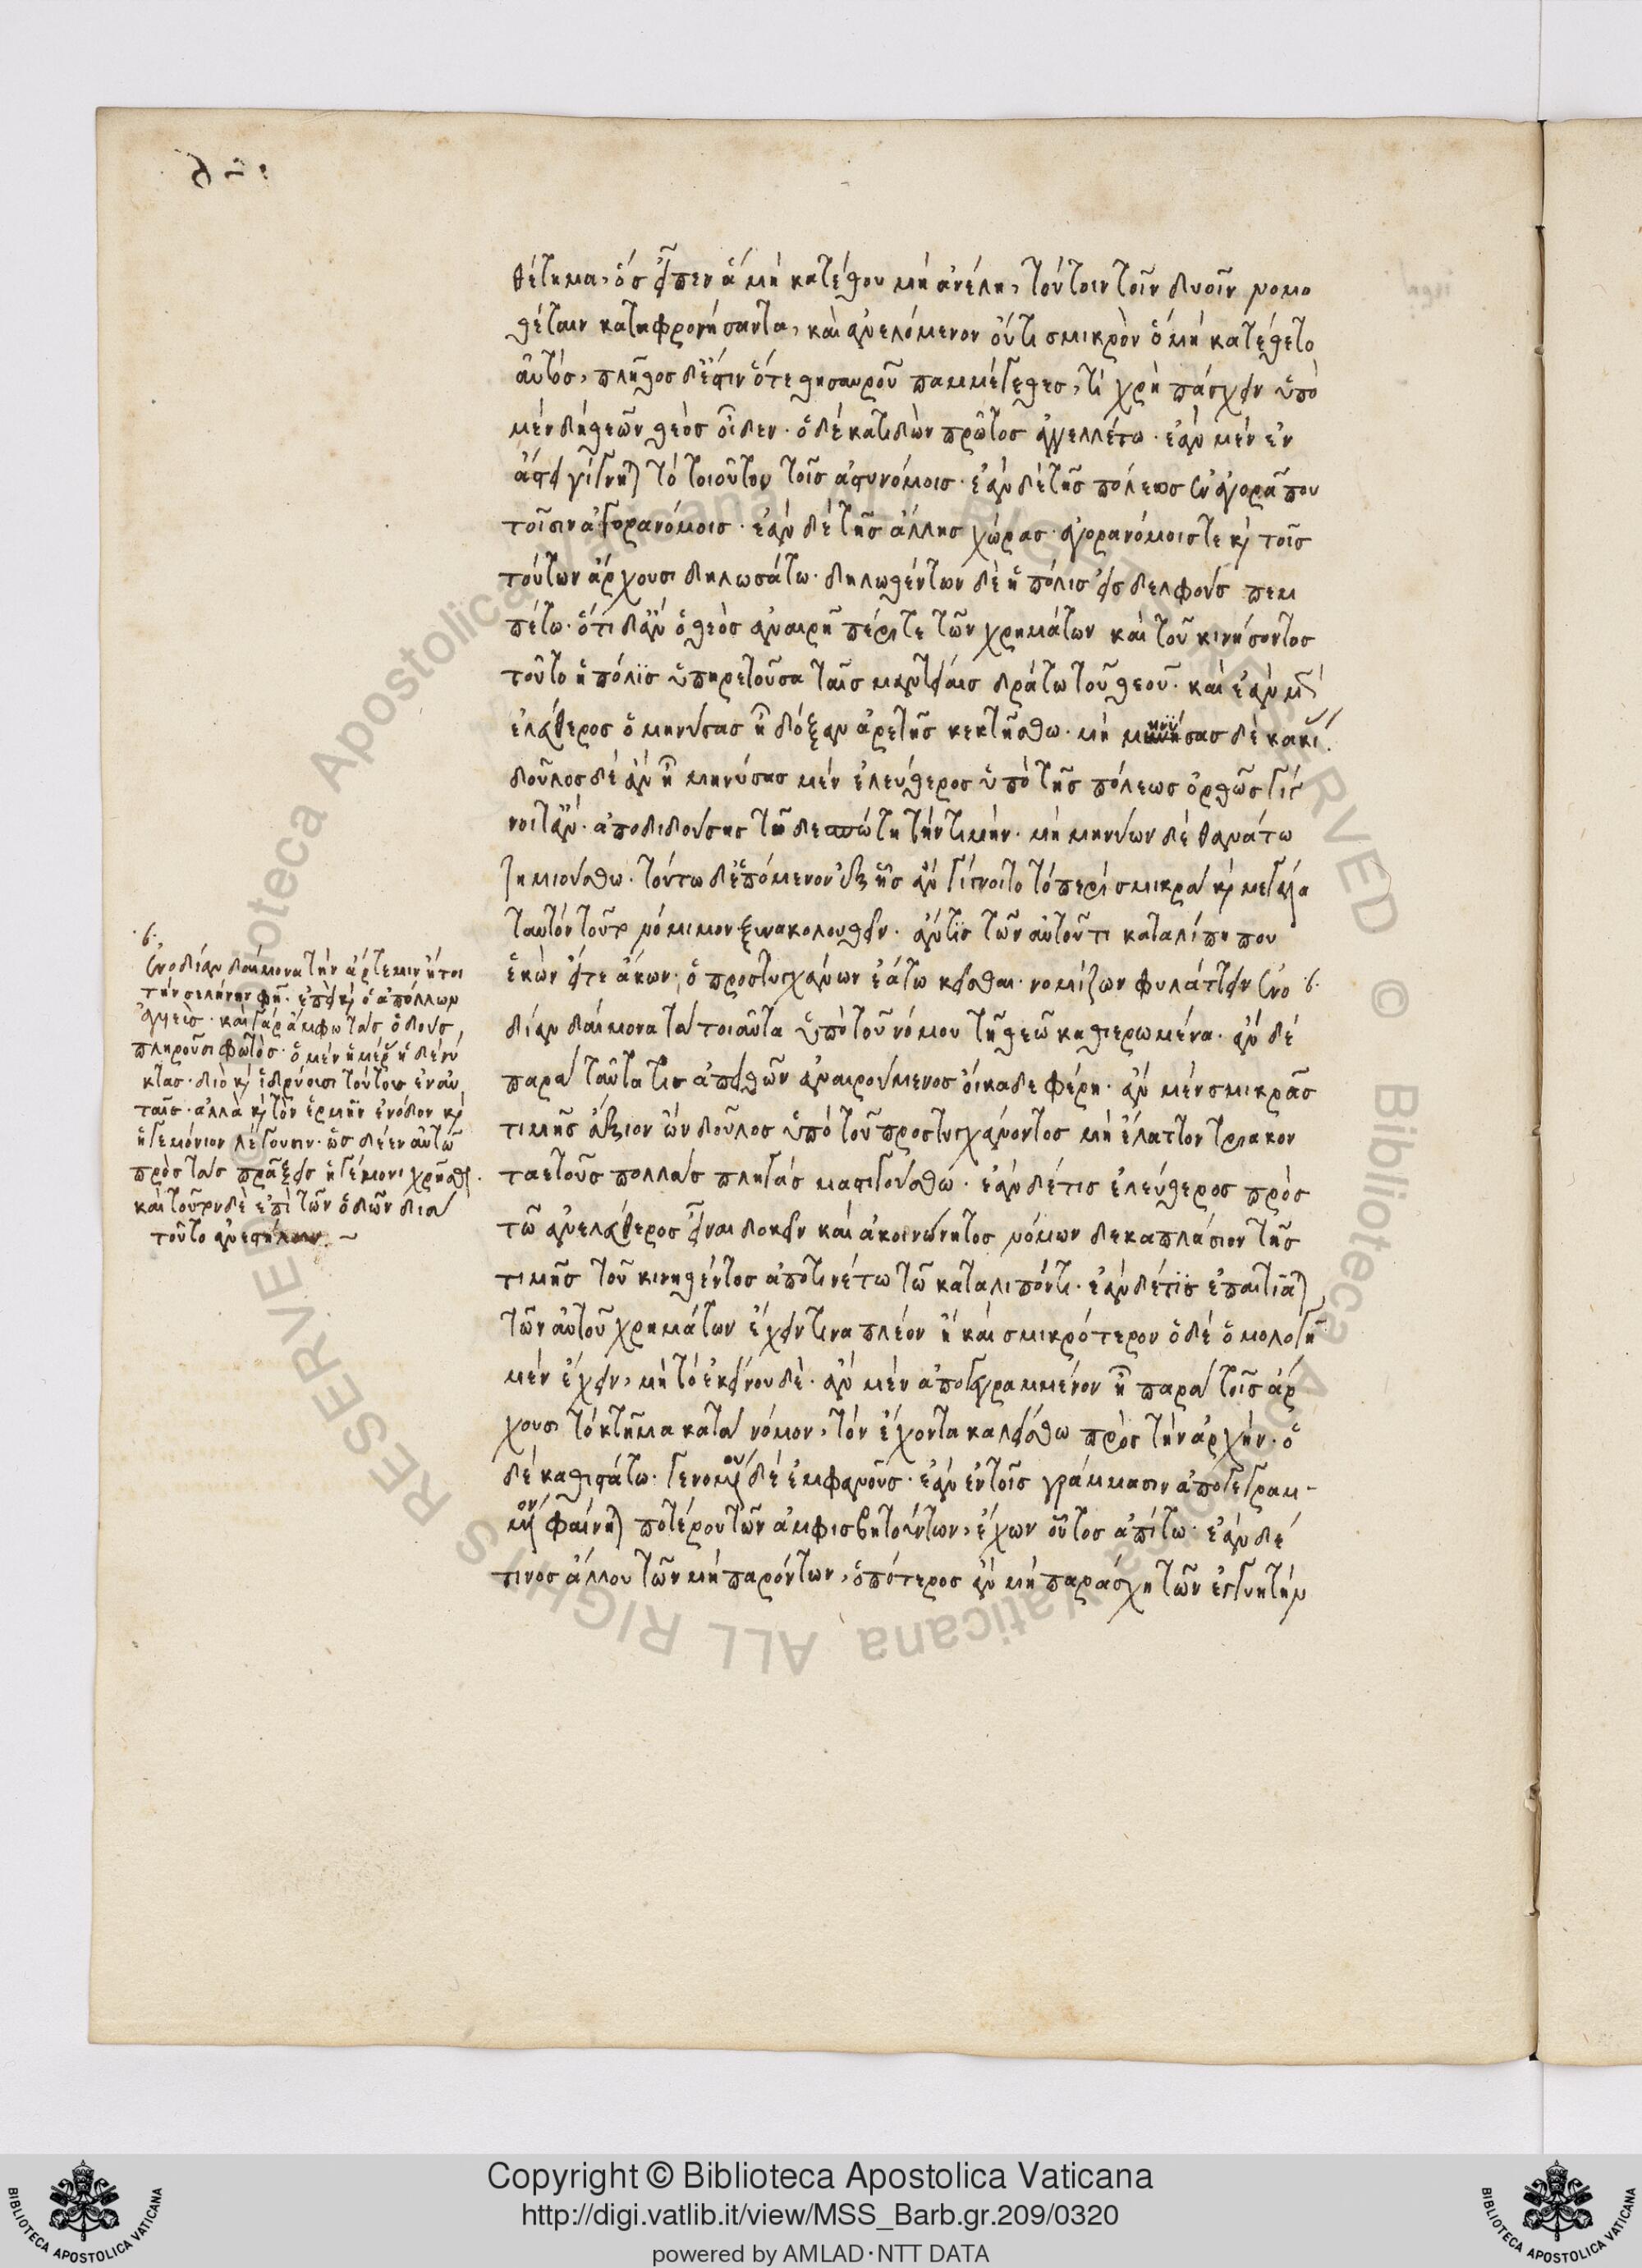 θέτημα, ὃς εἶπεν ἃ μὴ κατέθου μὴ ἀνέλῃ, τούτοιν τοῖν δυοῖν νομο
θέταιν καταφρονήσαντα, καὶ ἀνελόμενον οὔτι σμικρὸν ὃ μὴ κατέθετο
αὐτός, πλῆθος δ' ἔστιν ὅτε θησαυροῦ παμμέγεθες, τί χρὴ πάσχειν ὑπὸ
μὲν δὴ θεῶν θεὸς οἶδεν. ὁ δὲ κατιδὼν πρῶτος ἀγγελλέτω. ἐὰν μὲν ἐν
ἄστει γίγνηται τὸ τοιοῦτον τοῖς ἀστυνόμοις. ἐὰν δὲ τῆς πόλεως ἐν ἀγορᾶ που
τοῖσιν ἀγορανόμοις. ἐὰν δὲ τῆς ἄλλης χώρας. ἀγορανόμοις τε καὶ τοῖς
τούτων ἄρχουσι δηλωσάτω. δηλωθέντων δὲ ἡ πόλις εἰς δελφοὺς πεμ
πέτω. ὅτι δ' ἂν ὁ θεὸς ἀναιρῆ πέρι τε τῶν χρημάτων καὶ τοῦ κινήσαντος
τοῦτο ἡ πόλις ὑπηρετοῦσα ταῖς μαντείαις δράτω τοῦ θεοῦ. καὶ ἐὰν μὲν
ἐλεύθερος ὁ μηνύσας ἦ δόξαν ἀρετῆς κεκτήσθω. μὴ μηνύσας δὲ κακί.
δοῦλος δὲ ἂν ἦ μηνύσας μὲν ἐλεύθερος ὑπὸ τῆς πόλεως ὀρθῶς γίγ
νοιτ' ἄν. ἀποδιδούσης τῷ δεσπότη τὴν τιμήν. μὴ μηνύων δὲ θανάτω
ζημιούσθω. τούτω δ' ἑπόμενον ἑξῆς ἂν γίγνοιτο τὸ περὶ σμικρὰ καὶ μεγάλα
ταυτὸν τοῦτο νόμιμον ξυνακολουθεῖν. ἄν τις τῶν αὑτοῦ τι καταλίπη που
ἑκὼν εἴτε ἄκων, ὁ προστυγχάνων ἐάτω κεῖσθαι. νομίζων φυλάττειν ἐνο
δίαν δαίμονα τὰ τοιαῦτα ὑπὸ τοῦ νόμου τῆ θεῶ καθιερωμένα. ἂν δὲ
παρὰ ταῦτα τις ἀπειθῶν ἀναιρούμενος οἴκαδε φέρη. ἂν μὲν σμικρᾶς
τιμῆς ἄξιον ὢν δοῦλος ὑπὸ τοῦ προστυγχάνοντος μὴ ἔλαττον τριακον
ταετοῦς πολλὰς πληγὰς μαστιγούσθω. ἐὰν δέ τις ἐλεύθερος πρὸς
τῶ ἀνελεύθερος εἶναι δοκεῖν καὶ ἀκοινώνητος νόμων δεκαπλάσιον τῆς
τιμῆς τοῦ κινηθέντος ἀποτινέτω τῶ καταλιπόντι. ἐὰν δέ τις ἐπαιτιᾶται
τῶν αὑτοῦ χρημάτων ἔχειν τινα πλέον ἢ καὶ σμικρότερον ὁ δὲ ὁμολογῆ
μὲν ἔχειν, μὴ τὸ ἐκείνου δὲ. ἂν μὲν ἀπογεγραμμένον ἦ παρὰ τοῖς ἄρ
χουσι τὸ κτῆμα κατὰ νόμον, τὸν ἔχοντα καλείσθω πρὸς τὴν ἀρχήν. ὁ
δὲ καθιστάτω. γενομένου δὲ ἐμφανοῦς. ἐὰν ἐν τοῖς γράμμασιν ἀπογεγραμ-
μένον φαίνηται ποτέρου τῶν ἀμφισβητούντων, ἔχων οὗτος ἀπίτω. ἐὰν δέ
τινος ἄλλου τῶν μὴ παρόντων, ὁπότερος ἂν μὴ παράσχη τῶν ἐγγυητὴν
ἐνοδίαν δαίμονα τὴν ἄρτεμιν ἤτοι
τὴν σελήνην φησὶ. ἐπεὶ καὶ ὁ ἀπόλλων
ἀγυιεὺς. καὶ γὰρ ἄμφω τὰς ὁδοὺς,
πληροῦσι φωτὸς. ὁ μὲν ἡμέρας ἡ δὲ νύ
κτας. διὸ καὶ ἱδρύουσι τούτους ἐν αὐ
ταῖς. ἀλλὰ καὶ τὸν ἑρμῆν ἐνόδιον καὶ
ἡγεμόνιον λέγουσιν. ὡς δέον αὐτῶ
πρὸς τὰς πράξεις ἡγεμόνι χρῆσθαι.
ἐπὶ τῶν ὁδῶν διὰ
τοῦτο
Copyright © Biblioteca Apostolica Vaticana
http://digi.vatlib.it/view/MSS_Barb.gr.209/0320
powered by AMLAD·NTT DATA
BIBLIOTECA APOSTOLICA VATICANA
BIBLIOTECA APOSTOLICA VATICANA
© Biblioteca Apostolica Vaticana ALL RIGHTS RESERVED